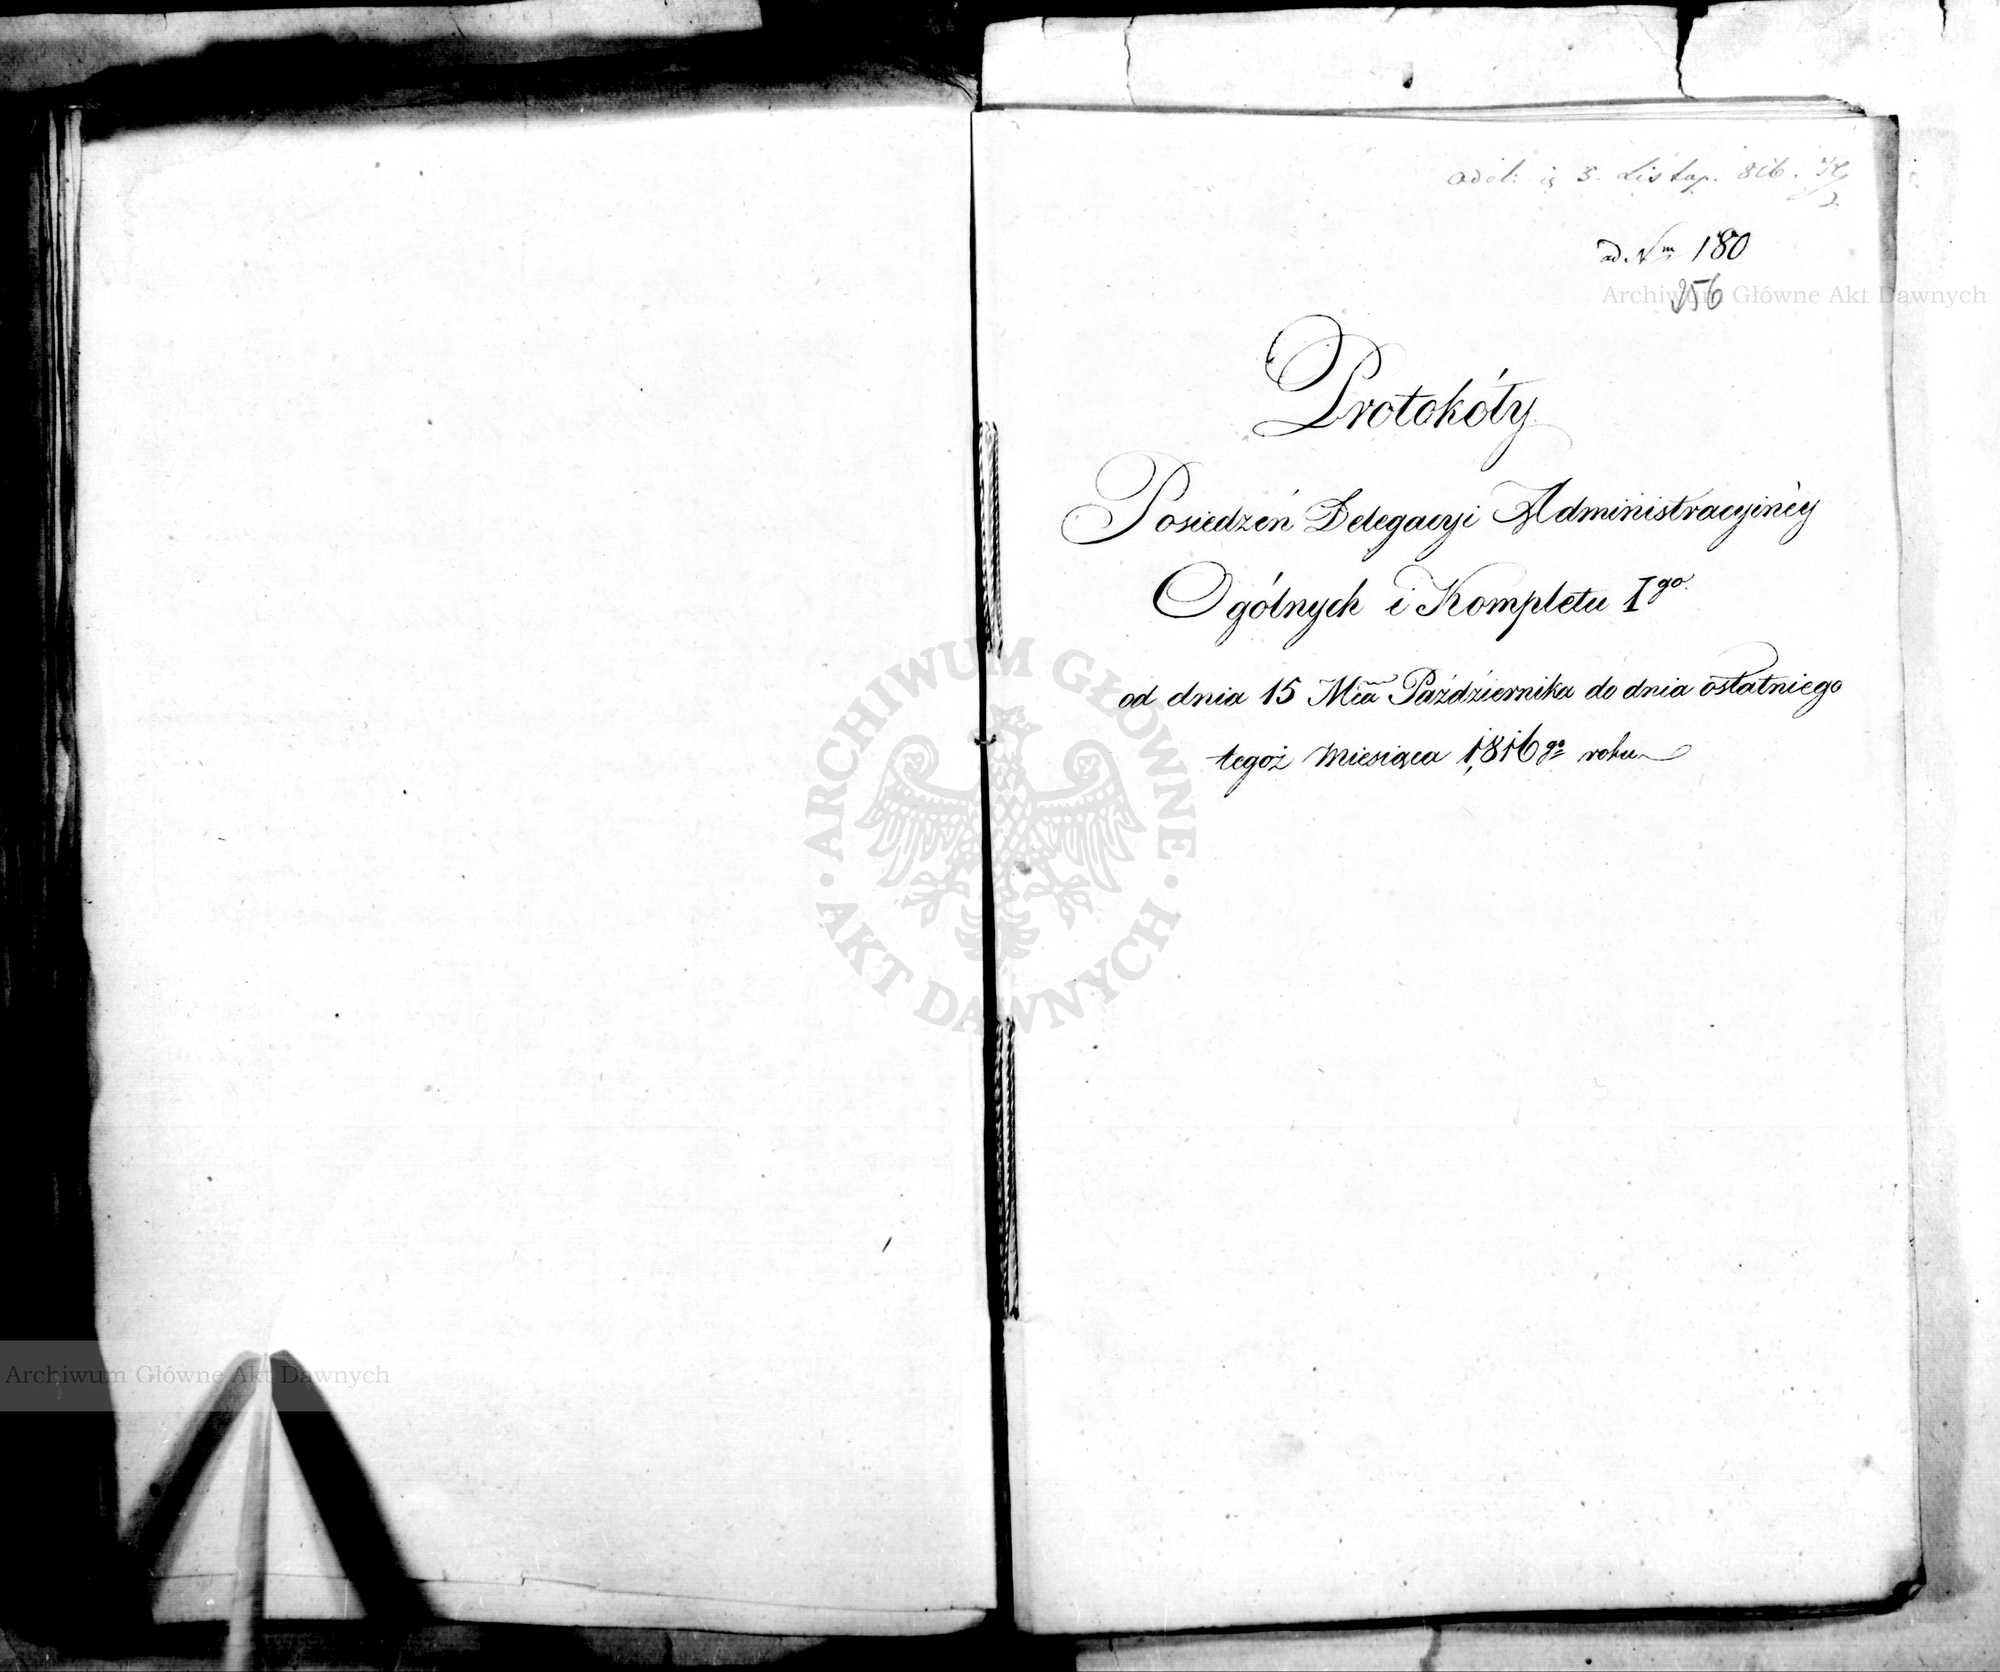 5. Listop. 816.
ad Nm 180
256
Protokóły
Posiedzeń Delegacyi Administracyinéy
Ogólnych i Kompletu Igo
od dnia 15 Mca Października do dnia ostatniego
tegoż Miesiąca 1816go roku
ARCHIWUM GŁÓWNE AKT DAWNYCH
Archiwum Główne Akt Dawnych
Archiwum Główne Akt Dawnych